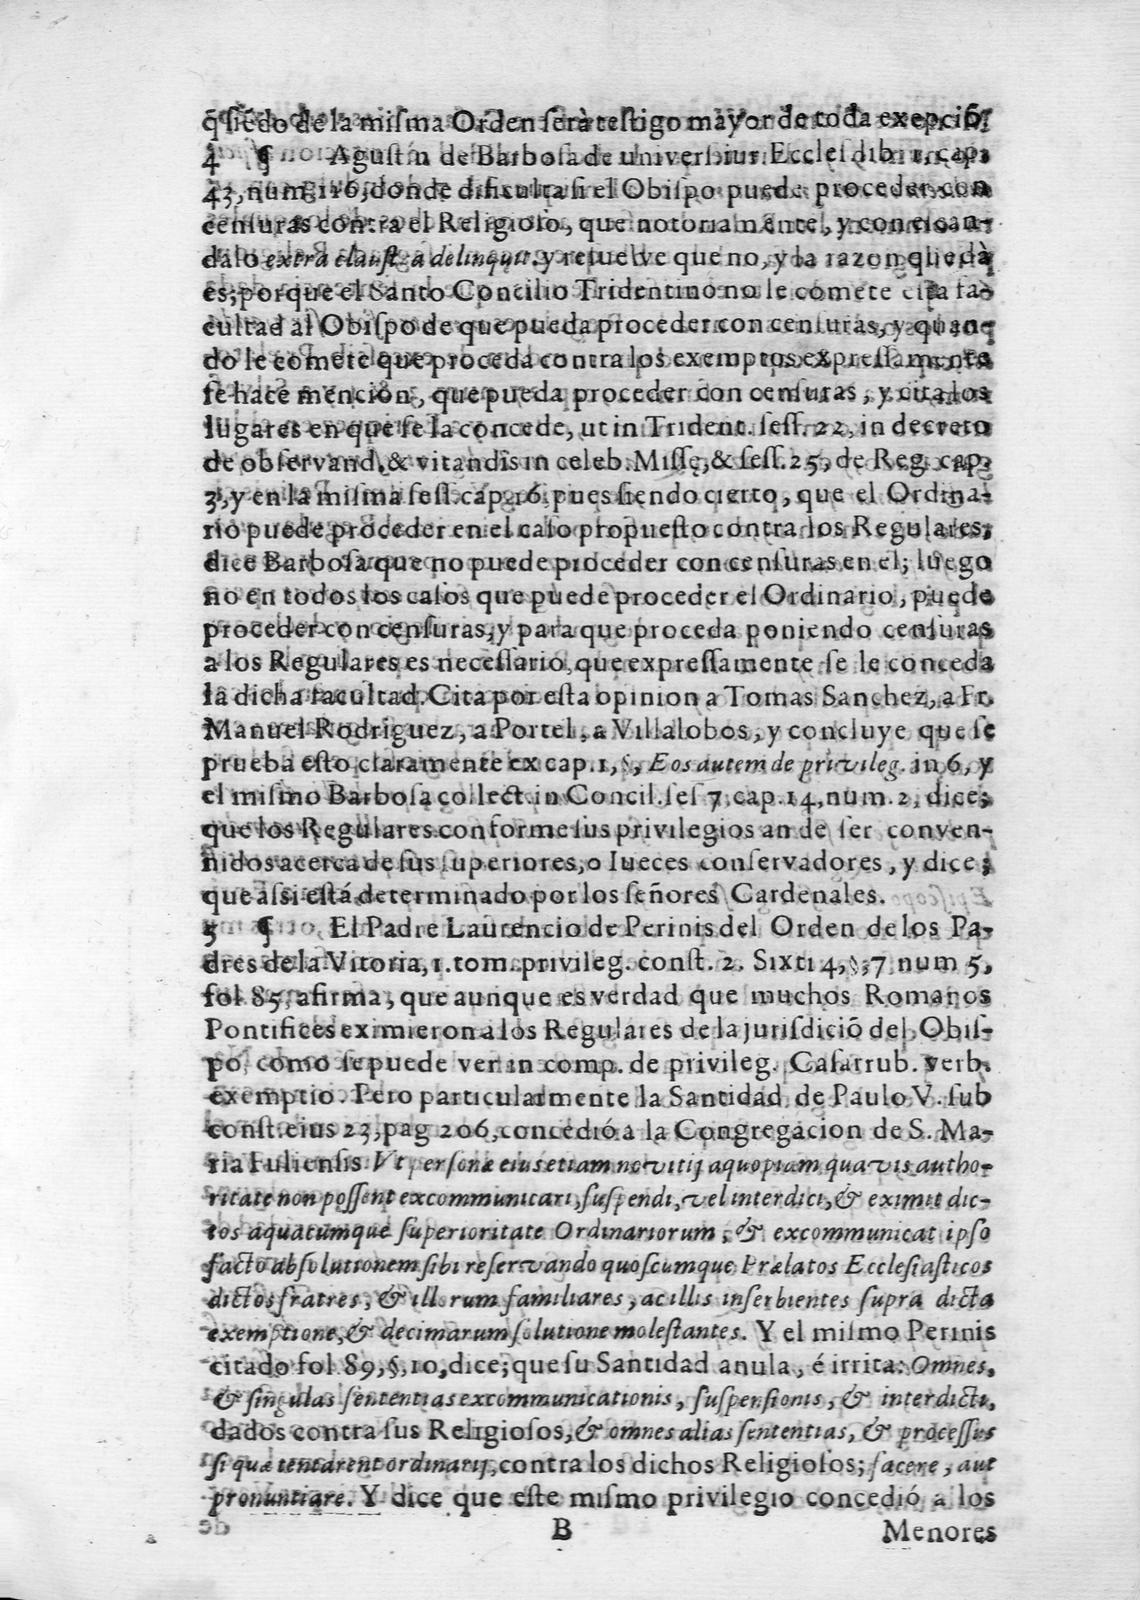 q̃ siẽdo de la misma Orden serà testigo mayor de toda exepciõ.
4 ¶ Agustin de Barbosa de universiur. Eccles. lib. 1. cap.
43, num. 116, donde dificulta si el Obispo puede proceder con
censuras contra el Religioso, que notoriamente, y con escan-
dalo extra claustra delinquit. y resuelve que no, y la razon que dà
es; porque el Santo Concilio Tridentino no le comete esta fa-
cultad al Obispo de que pueda proceder con censuras, y quan-
do le comete que proceda contra los exemptos expressamente
se hace mención, que pueda proceder con censuras, y cita los
lugares en que se la concede, ut in Trident. sess. 22, in decreto
de observand, & vitandis in celeb. Missę, & sess. 25, de Reg. cap.
3, y en la misma sess. cap. 16. pues siendo cierto, que el Ordina-
rio puede proceder en el caso propuesto contra los Regulares,
dice Barbosa que no puede proceder con censuras en el; luego
no en todos los casos que puede proceder el Ordinario, puede
proceder con censuras, y para que proceda poniendo censuras
a los Regulares es necessario, que expressamente se le conceda
la dicha facultad. Cita por esta opinion a Tomas Sanchez, a Fr.
Manuel Rodriguez, a Portel, a Villalobos, y concluye que se
prueba esto claramente ex cap. 1, §, Eos autem de privileg. in 6, y
el mismo Barbosa collect. in Concil. ses 7, cap. 14, num. 2, dice;
que los Regulares conforme sus privilegios an de ser conven-
nidos acerca de sus superiores, o Iueces conservadores, y dice;
que assi está determinado por los señores Cardenales.
5 ¶ El Padre Laurencio de Perinis del Orden de los Pa-
dres de la Vitoria, 1. tom. privileg. const. 2. Sixti 4, §, 7 num 5,
fol 85, afirma, que aunque es verdad que muchos Romanos
Pontifices eximieron a los Regulares de la jurisdiciõ del Obis-
po, como se puede ver in comp. de privileg. Casarrub. verb.
exemptio. Pero particularmente la Santidad de Paulo V. sub
const. eius 23, pag 206, concedió a la Congregacion de S. Ma-
ria Fuliensis Vt personæ eius etiam novitij a quopiam quavis autho-
ritate non possent excommunicari, suspendi, vel interdici, & eximit dic-
tos a quacumque superioritate Ordinariorum, & excommunicat ipso
facto absolutionem sibi reservando quoscumque Prælatos Ecclesiasticos
dictos fratres, & illorum familiares, ac illis inserbientes supra dicta
exemptione, & decimarum solutione molestantes. Y el mismo Perinis
citado fol 89, §, 10, dice; que su Santidad anula, é irrita: Omnes,
& singulas sententias excommunicationis, suspensionis, & interdicti,
dados contra sus Religiosos, & omnes alias sententias, & processus
si quæ tentarent ordinarij, contra los dichos Religiosos; facere, aut
pronuntiare. Y dice que este mismo privilegio concedió a los
B Menores